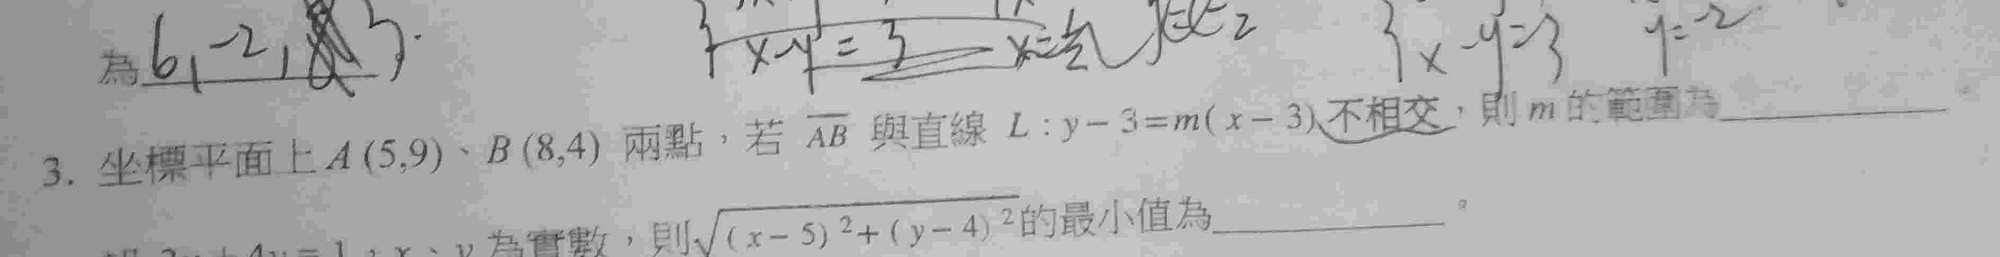 為 6, -2,
x-y=3
x-y=3 y=-2
3. 坐標平面上 A (5,9)、B (8,4) 兩點，若 \overline{AB} 與直線 L : y-3=m(x-3) 不相交，則 m 的範圍為________。
為實數，則√(x-5)²+(y-4)² 的最小值為________。